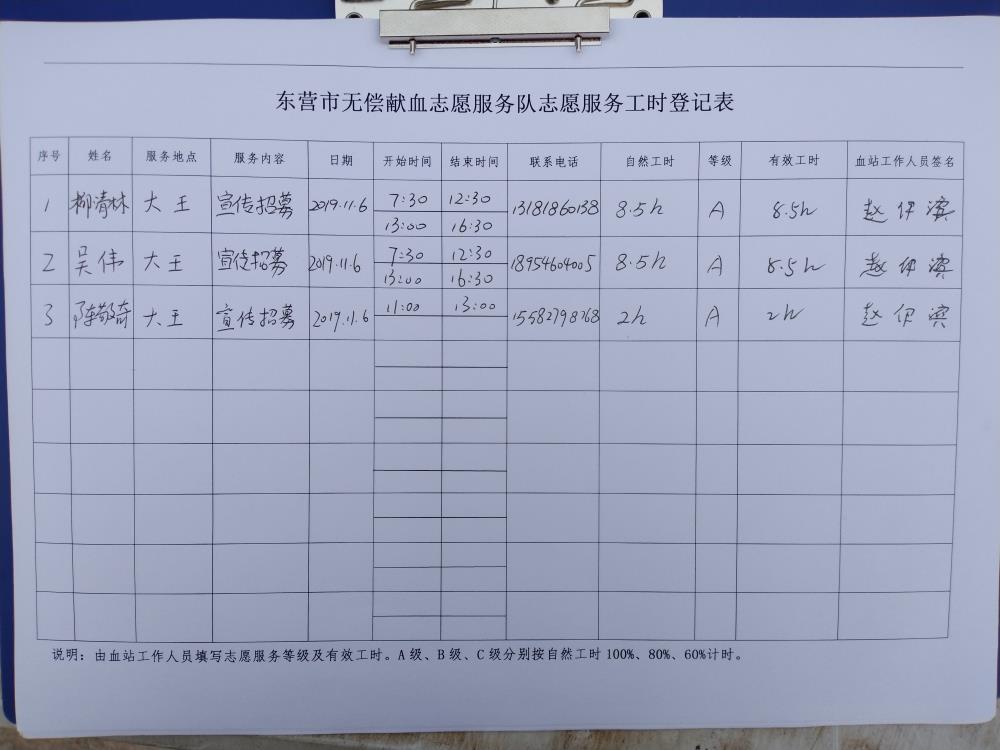 东营市无偿献血志愿服务队志愿服务工时登记表
序号 姓名 服务地点 服务内容 日期 开始时间 结束时间 联系电话 自然工时 等级 有效工时 血站工作人员签名
1 柳清林 大王 宣传招募 2019.11.6 7:30 12:30 13181860138 8.5h A 8.5h 赵伊滨
13:00 16:30
2 吴伟 大王 宣传招募 2019.11.6 7:30 12:30 18954604005 8.5h A 8.5h 赵伊滨
13:00 16:30
3 陈敬奇 大王 宣传招募 2019.11.6 11:00 13:00 15582798268 2h A 2h 赵伊滨
说明：由血站工作人员填写志愿服务等级及有效工时。A级、B级、C级分别按自然工时100%、80%、60%计时。